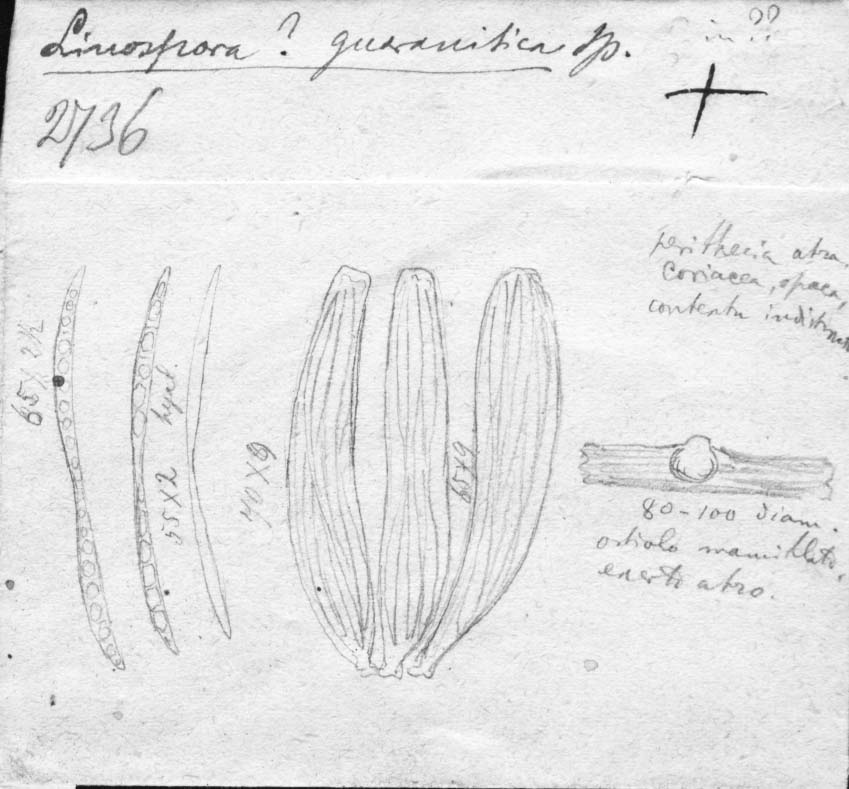 Linospora ? guaranitica Sp.
in ??
2736
perithecia atra,
coriacea, opaca,
contextu
65 × 2½
55 × 2 hyal.
70 × 9
65 × 9
80–100 diam.
ostiolo mamillato,
atro.